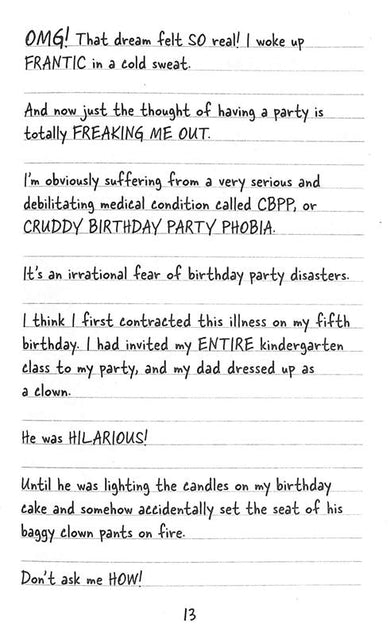 OMG! That dream felt SO real! I woke up
FRANTIC in a cold sweat.
And now just the thought of having a party is
totally FREAKING ME OUT.
I'm obviously suffering from a very serious and
debilitating medical condition called CBPP, or
CRUDDY BIRTHDAY PARTY PHOBIA.
It's an irrational fear of birthday party disasters.
I think I first contracted this illness on my fifth
birthday. I had invited my ENTIRE kindergarten
class to my party, and my dad dressed up as
a clown.
He was HILARIOUS!
Until he was lighting the candles on my birthday
cake and somehow accidentally set the seat of his
baggy clown pants on fire.
Don't ask me HOW!
13